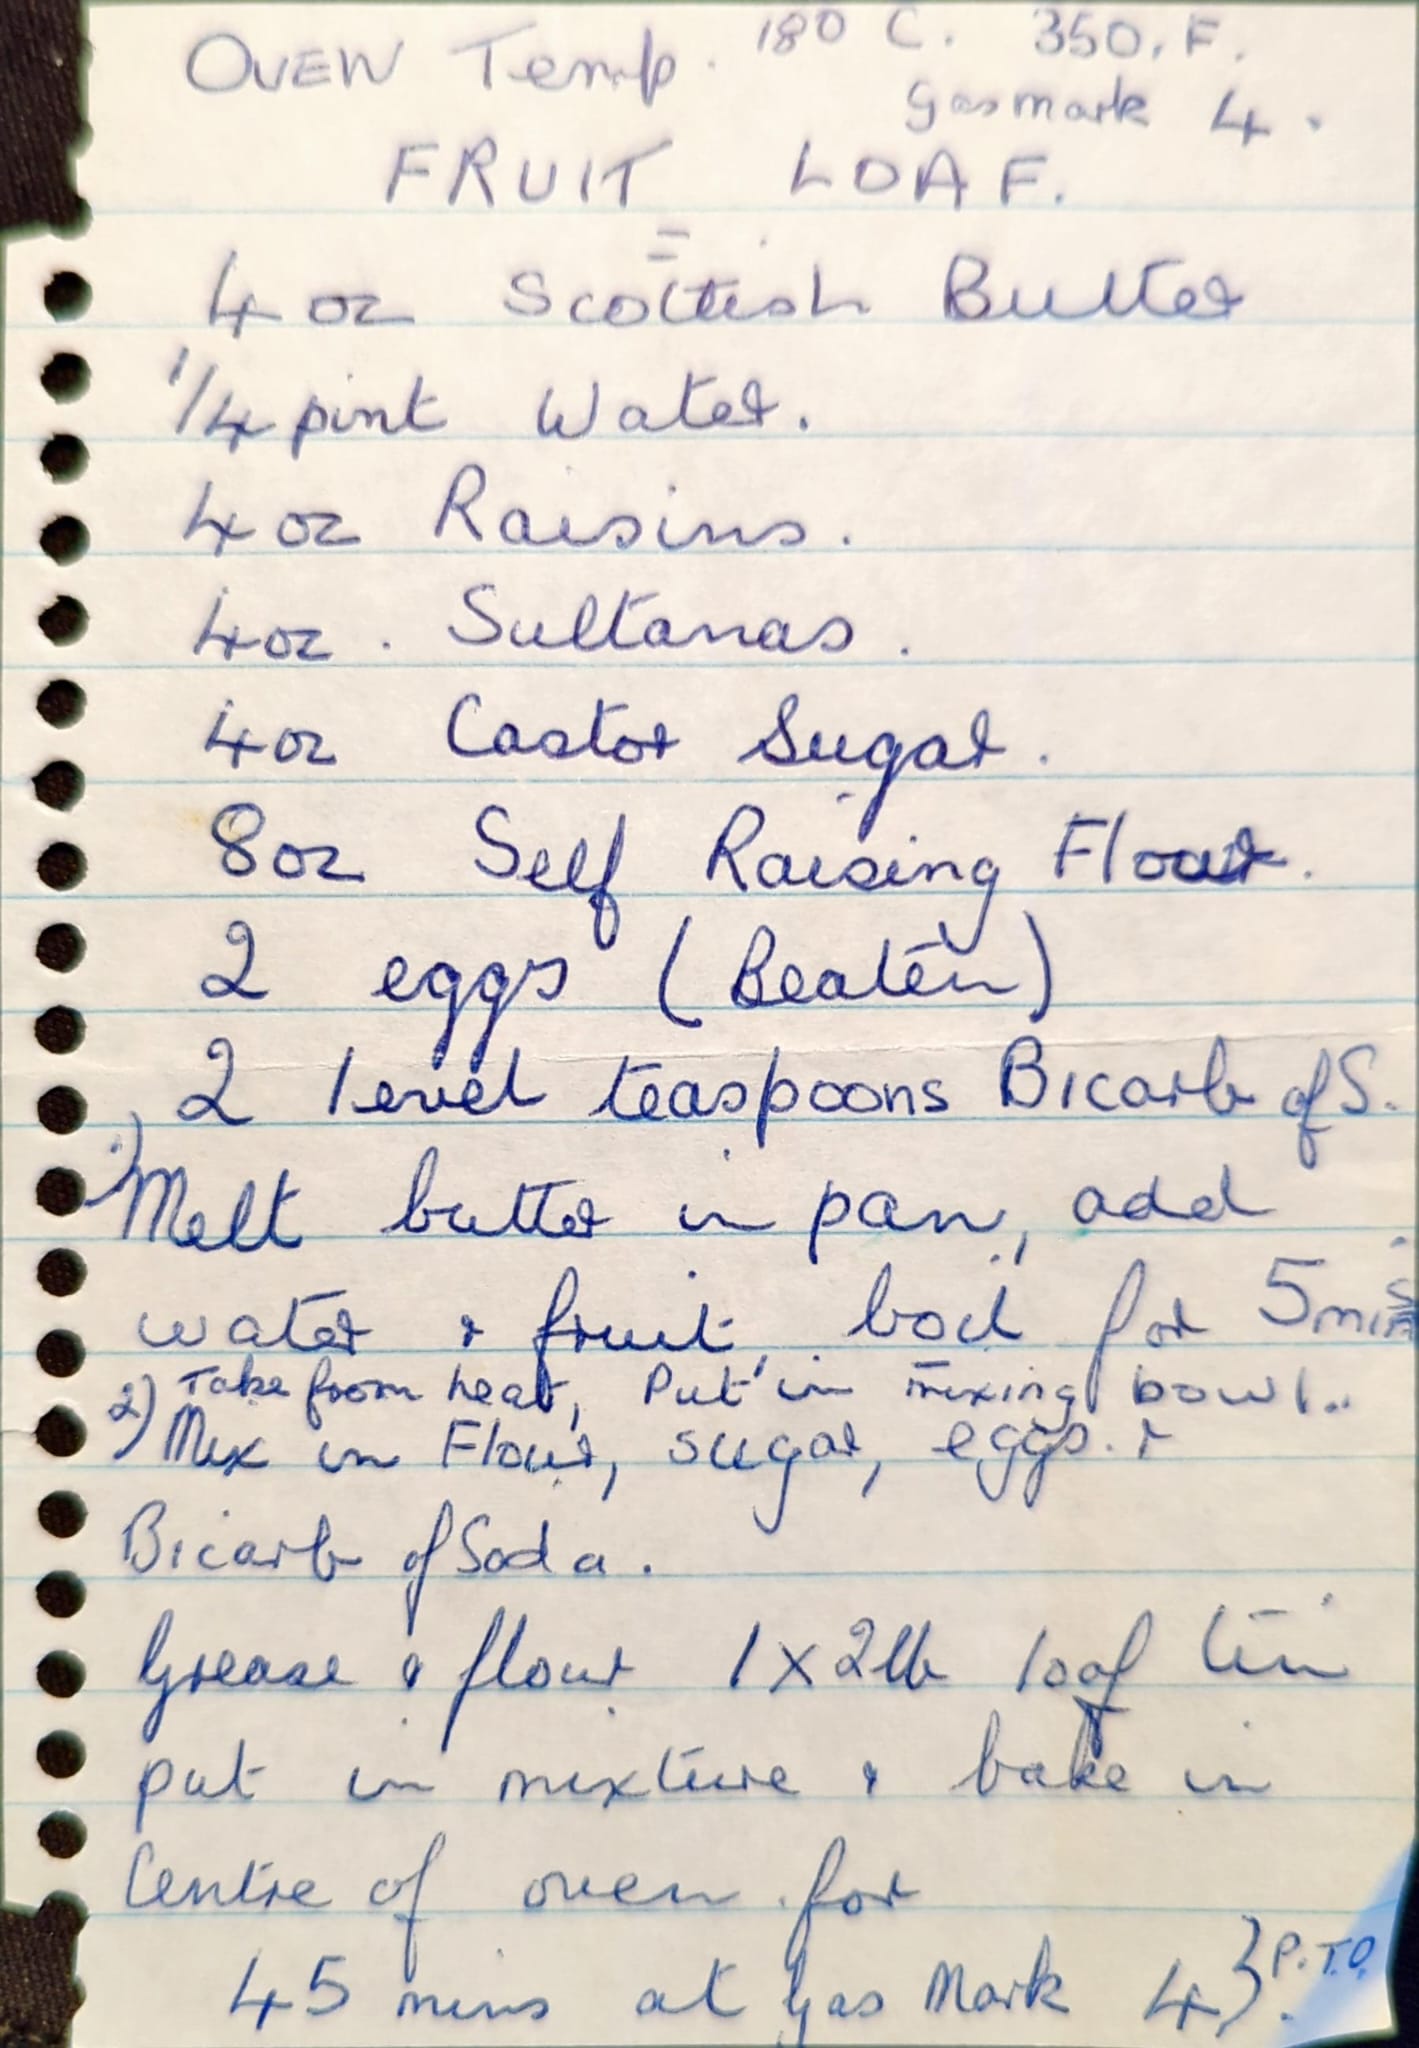 OVEN Temp. 180 C. 350. F.
Gas mark 4.
FRUIT LOAF.
4 oz Scottish Butter
1/4 pint Water.
4 oz Raisins.
4 oz. Sultanas.
4 oz Castor Sugar.
8 oz Self Raising Flour.
2 eggs (Beaten)
2 level teaspoons Bicarb of S.
1) Melt butter in pan, add
water & fruit, boil for 5 mins
Take from heat, Put in mixing bowl..
2) Mix in Flour, sugar, eggs. &
Bicarb of Soda.
Grease & flour 1 x 2lb loaf tin
put in mixture & bake in
Centre of oven for
45 mins at Gas Mark 4 } P.T.O.